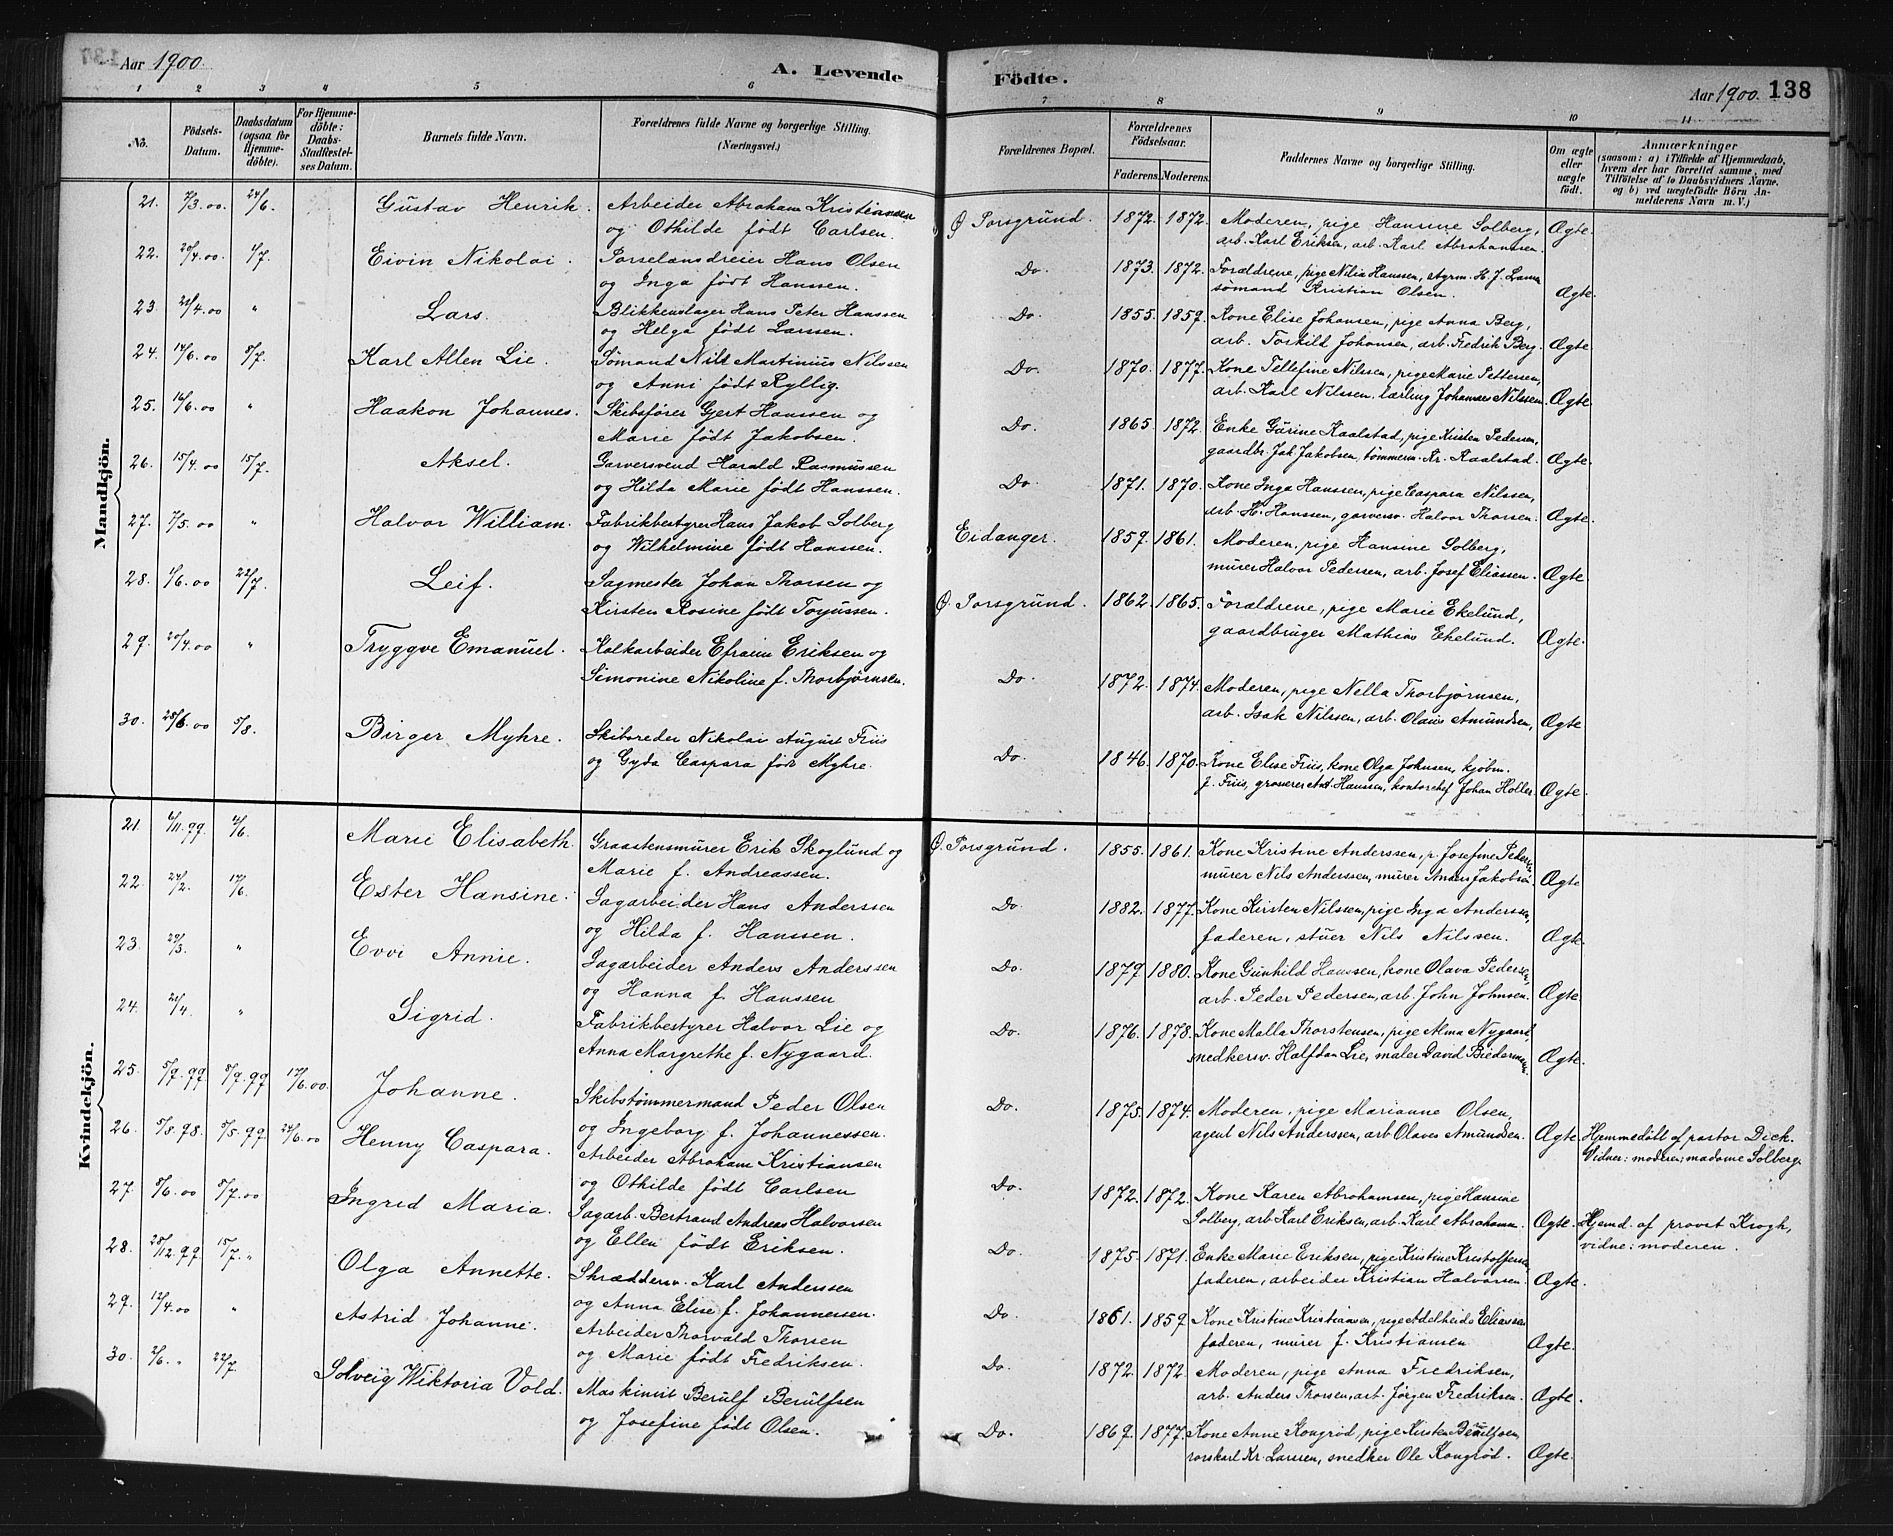 Aar 1900.
A. Levende
1 2 3 4 5 6
No.
Födsels-Datum.
Daabsdatum (ogsaa for Hjemme-döbte).
For Hjemme-döbte: Daabs-Stadfestel-ses Datum.
Barnets fulde Navn.
Forældrenes fulde Navne og borgerlige Stilling. (Næringsvei.)
Mandkjön.
21. 7/3.00. 24/6. Gustav Henrik. Arbeider Abraham Kristiansen
og Othilde født Carlsen.
22. 20/4.00. 1/7. Eivin Nikolai. Porselansdreier Hans Olsen
og Inga født Hanssen.
23. 21/4.00 " Lars. Blikkenslager Hans Peter Hanssen
og Helga født Larssen.
24. 14/6.00 8/7. Karl Allen Lie. Sømand Nils Martinius Nilssen
og Anni født Ryllig.
25. 16/6.00 " Haakon Johannes. Skibsfører Gjert Hanssen og
Marie født Jakobsen.
26. 15/4.00 15/7. Aksel. Garversvend Harald Rasmussen
og Hilda Marie født Hanssen.
27. 7/5.00 " Halvor William. Fabrikbestyrer Hans Jakob Solberg
og Wilhelmine født Hanssen.
28. 1/6.00 22/7. Leif. Sagmester Johan Thorsen og
Kirsten Rosine født Torjussen.
29. 20/4.00 " Tryggve Emanuel. Kalkarbeider Efraim Eriksen og
Simonine Nikoline f. Thorbjørnsen.
30. 25/6.00 5/8. Birger Myhre. Skibsreder Nikolai August Friis
og Gyda Caspara født Myhre.
Kvindekjön.
21. 6/11.99 4/6. Marie Elisabeth. Graastensmurer Erik Skoglund og
Marie f. Andreassen.
22. 24/2. 17/6. Ester Hansine. Sagarbeider Hans Anderssen
og Hilda f. Hanssen.
23. 29/3. " Evvi Annie. Sagarbeider Anders Anderssen
og Hanna f. Hanssen
24. 21/4. " Sigrid. Fabrikbestyrer Halvor Lie og
Anna Margrethe f. Nygaard.
25. 5/7.99 8/9.99 17/6.00 Johanne. Skibstømmermand Peder Olsen
og Ingeborg f. Johannessen.
26. 5/8.98. 5/5.99 24/6.00 Henny Caspara. Arbeider Abraham Kristiansen
og Othilde født Carlsen
27. 5/6.00 8/7.00 Ingrid Maria. Sagarb. Bertrand Andreas Halvorsen
og Ellen født Eriksen.
28. 28/12.99 15/7. " Olga Annette. Skræddersv. Karl Anderssen
og Anna Elise f. Johannessen.
29. 12/4.00 " Astrid Johanne. Arbeider Thorvald Thorsen
og Marie født Fredriksen.
30. 2/6. " 22/7. Solveig Wiktoria Vold. Maskinist Berulf Berulfsen
og Josefine født Olsen.
Födte.
Aar 1900. 138
7 8 9 10 11
Forældrenes Bopæl.
Forældrenes Födselsaar.
Faderens. Moderens.
Faddernes Navne og borgerlige Stilling.
Om ægte eller uægte födt.
Anmærkninger
(saasom: a) i Tilfælde af Hjemmedaab, hvem der har forrettet samme, med Tilföielse af to Daabsvidners Navne, og b) ved uægtefödte Börn Anmelderens Navn m. V.)
Ø Porsgrund. 1872. 1872. Moderen, pige Hansine Solberg,
arb. Karl Eriksen, arb. Karl Abrahamsen. Ægte.
Do. 1873. 1872. Forældrene, pige Nilia Hanssen, styrm. H. J. Lann
sømand Kristian Olsen. Ægte.
Do. 1855. 1859. Kone Elise Johansen, pige Anna Berg,
arb. Torkild Johansen, arb. Fredrik Berg. Ægte.
Do. 1870. 1877. Kone Tellefine Nilssen, pige Marie Pettersen,
arb. Karl Nilssen, lærling Johannes Nilssen. Ægte.
Do. 1865. 1872. Enke Gurine Kaalstad, pige Kirsten Pedersen,
gaardbr. Jak Jakobsen, tømmerm. Kr. Kaalstad. Ægte.
Do. 1871. 1870. Kone Inga Hanssen, pige Caspara Nilssen,
arb. H. Hanssen, garversv. Halvor Thorsen. Ægte.
Eidanger. 1859. 1861. Moderen, pige Hansine Solberg,
murer Halvor Pedersen, arb. Josef Eliassen. Ægte.
Ø. Porsgrund. 1862. 1865. Forældrene, pige Marie Ekelund,
gaardbruger Mathias Ekelund. Ægte.
Do. 1872. 1874. Moderen, pige Nella Thorbjørnsen,
arb. Isak Nilssen, arb. Olaus Amundsen, Ægte
Do. 1846. 1870. Kone Elise Friis, kone Olga Johnsen, kjøbm.
J. Friis, groserer Ant. Hanssen, kontorchef Johan Holler. Ægte.
Ø. Porsgrund. 1855. 1861. Kone Kristine Anderssen, p. Josefine Pedersen
murer Nils Anderssen, murer Anders Jakobsen. Ægte
Do. 1882. 1877. Kone Kirsten Nilssen, pige Inga Anderssen,
faderen, stuer Nils Nilssen. Ægte.
Do. 1879. 1880. Kone Gunhild Hanssen, kone Olava Pedersen,
arb. Peder Pedersen, arb. John Johnsen. Ægte
Do. 1876. 1878. Kone Malla Thorstensen, pige Alma Nygaard,
snedkersv. Halfdan Lie, maler David Biedermann. Ægte.
Do. 1875. 1874. Moderen, pige Marianne Olsen,
agent Nils Anderssen, arb. Olaves Amundsen. Ægte Hjemmedøbt af pastor Dick.
Vidner: moderen; madame Solberg.
Do. 1872. 1872. Kone Karen Abrahamsen, pige Hansine
Solberg, arb. Karl Eriksen, arb. Karl Abrahamsen. Ægte. Hjemd. af provst Krogh,
vidne: moderen.
Do. 1875. 1871. Enke Marie Eriksen, pige Kristine Kristoffersen
faderen, arbeider Kristian Halvorsen. Ægte.
Do. 1861. 1859 Kone Kristine Kristiansen, pige Adelheide Eliassen
faderen, murer J. Kristiansen. Ægte.
Do. 1872. 1872. Moderen, pige Anna Fredriksen,
arb. Anders Thorsen, arb. Jørgen Fredriksen. Ægte.
Do. 1869. 1877. Kone Anne Kongrød, pige Kirsten Berulfsen,
rorskarl Kr. Larssen, snedker Ole Kongrød. Ægte.